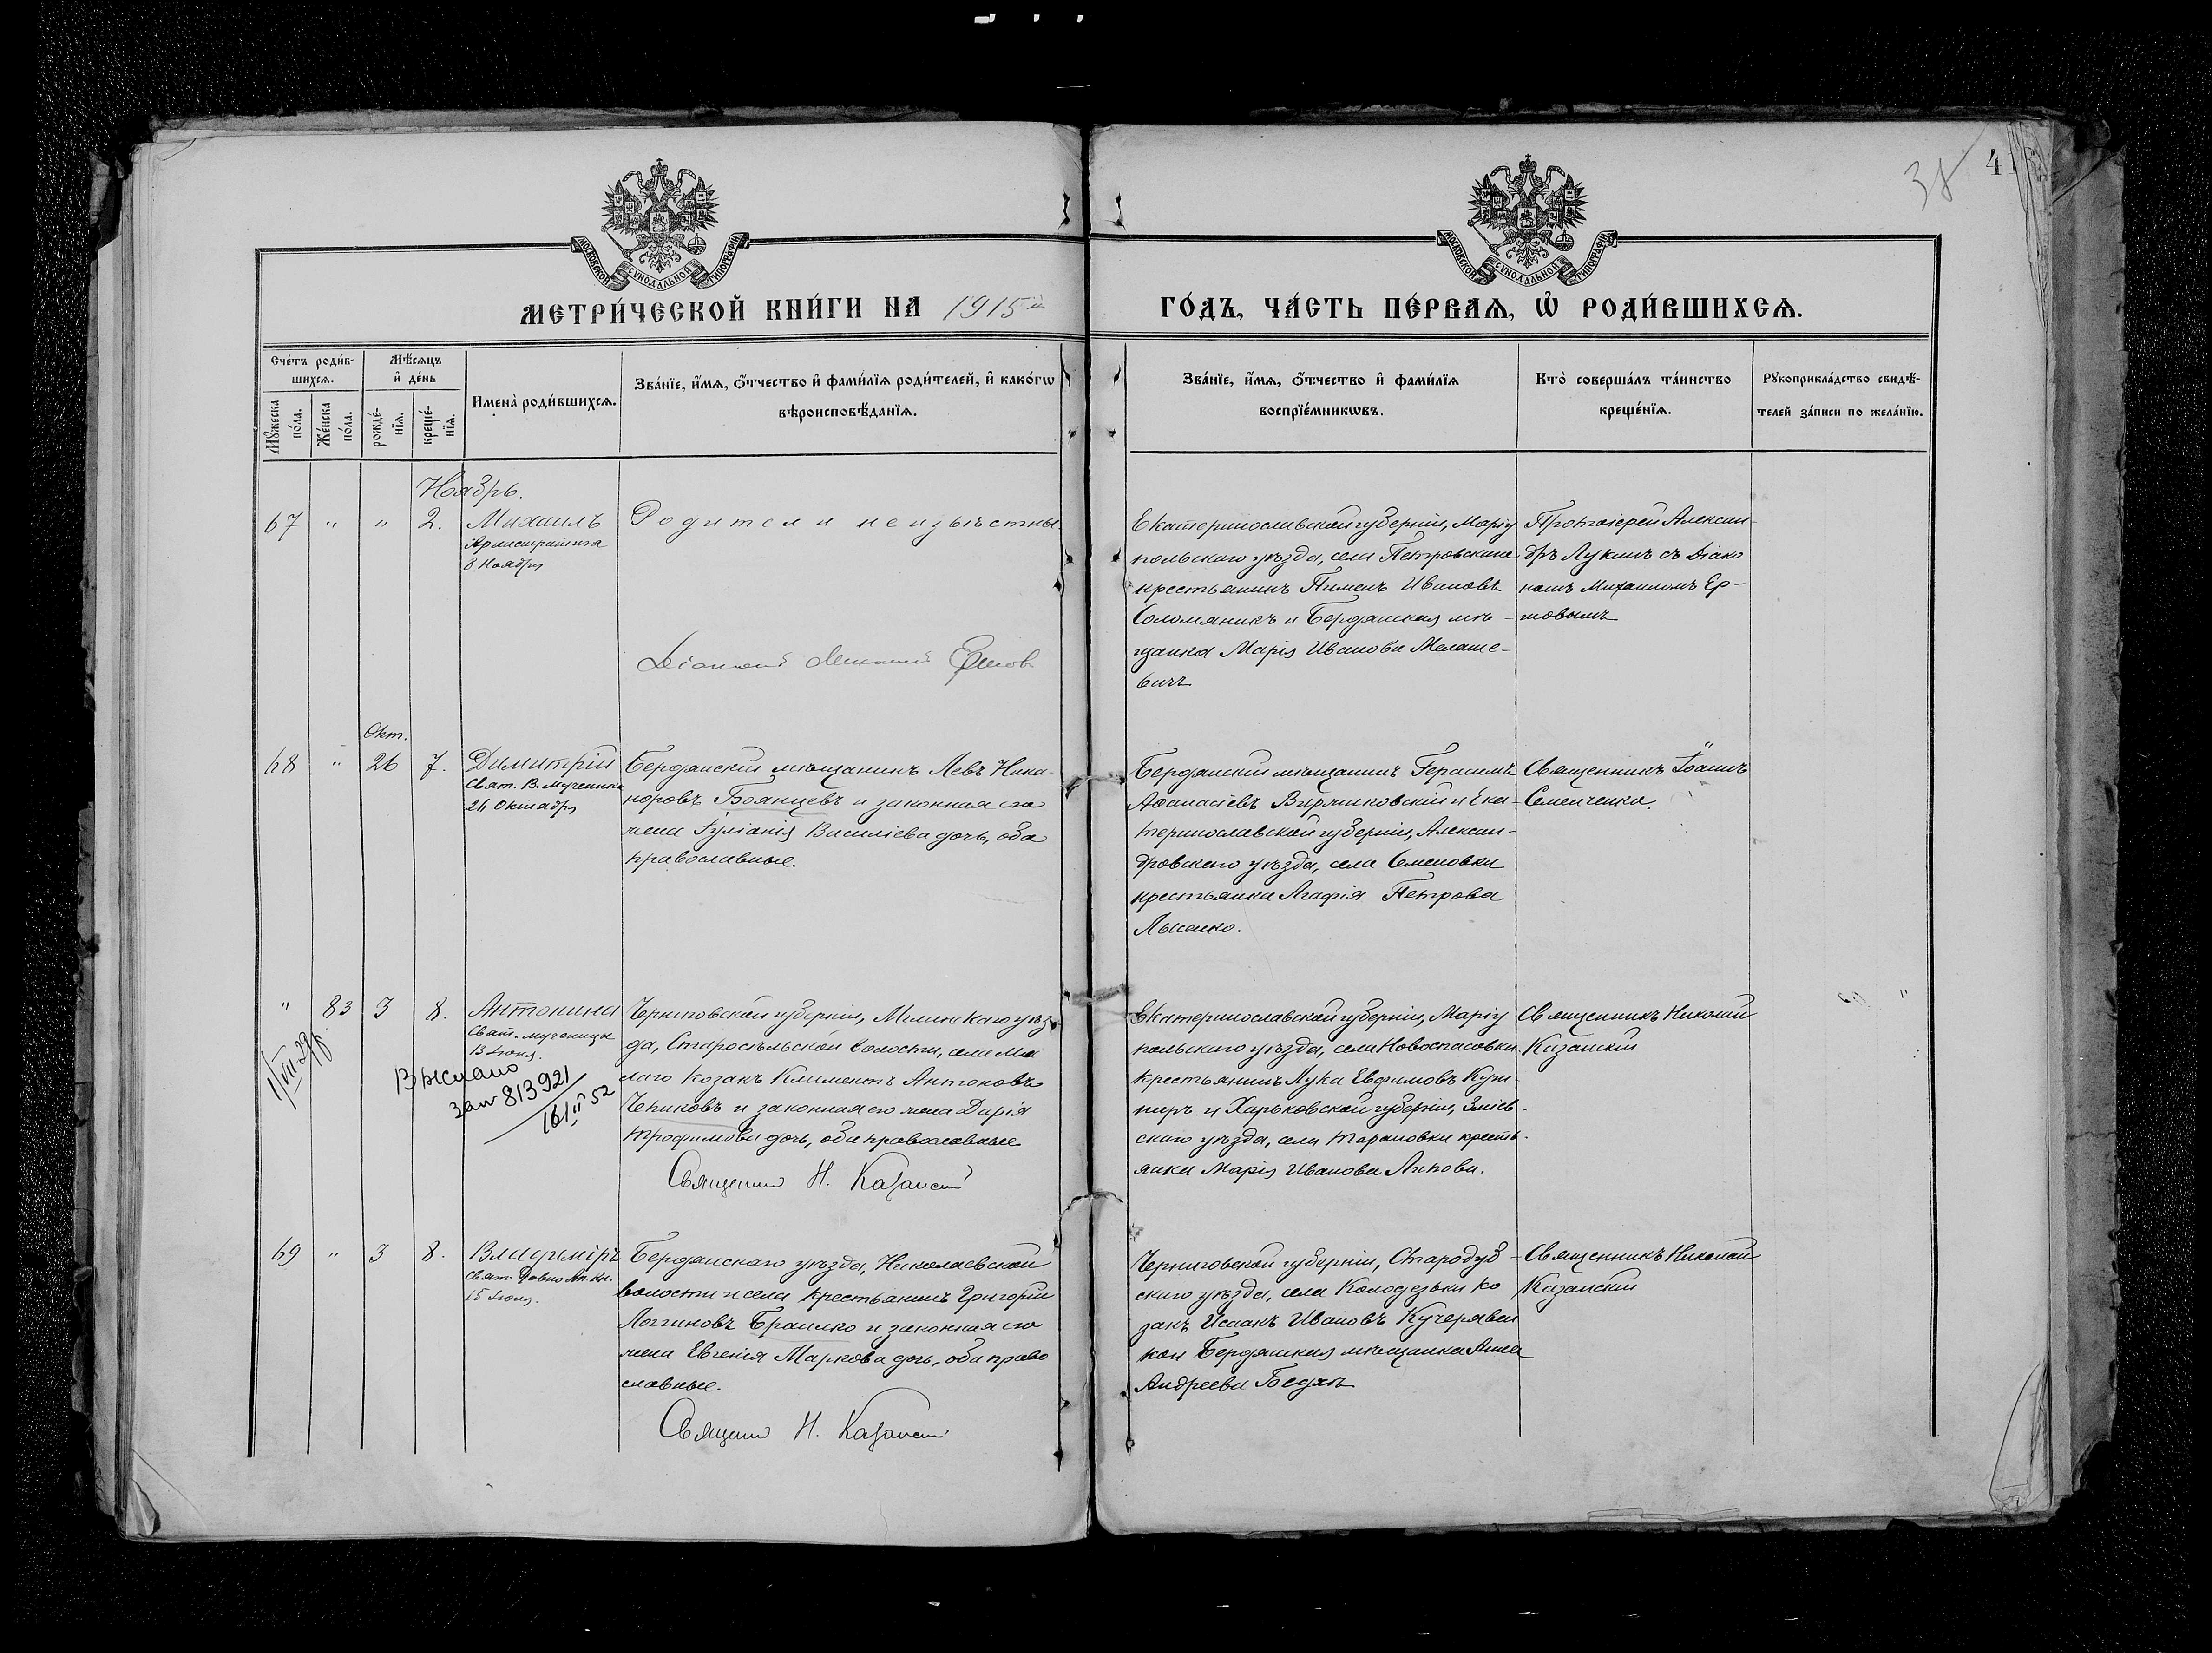 38
41
МОСКОВСКОЙ СѴНОДАЛЬНОЙ ТИПОГРАФІИ
МОСКОВСКОЙ СѴНОДАЛЬНОЙ ТИПОГРАФІИ
МЕТРИ́ЧЕСКОЙ КНИ́ГИ НА 1915й
ГО́ДЪ, ЧА́СТЬ ПЕ́РВАѦ, Ѡ҆ РОДИ́ВШИХСѦ.
Сче́тъ роди́в-
шихсѧ.
Мꙋ́жеска по́ла.
Же́нска по́ла.
Мѣ́сѧцъ
и҆ де́нь
рожде́-
нїѧ.
креще́-
нїѧ.
Имена̀ роди́вшихсѧ.
Зва́нїе, и҆́мѧ, ѻ҆́тчество и҆ фами́лїѧ роди́телей, и҆ како́гѡ
вѣроисповѣ́данїѧ.
Зва́нїе, и҆́мѧ, ѻ҆́тчество и҆ фами́лїѧ
воспрїе́мникѡвъ.
Кто̀ соверша́лъ та́инство
креще́нїѧ.
Рꙋкоприкла́дство свидѣ́-
телей за́писи по жела́нїю.
Ноябрь.
67 " " 2. Михаилъ
Архистратига
8 Ноября
Родители неизвѣстны
Діаконъ Михаилъ Ершов
Екатеринославской губерніи, Маріу
польскаго уѣзда, села Петровскаго
крестьянинъ Пименъ Ивановъ
Соломяникъ и Бердянская мѣ-
щанка Марія Иванова Мелаше-
вичъ
Протоіерей Алексан-
дръ Лукинъ съ Діако
номъ Михаиломъ Ер-
шовымъ
Окт.
68 " 26 7. Димитрій
Свят. В. Мученика
24 Октября
Бердянскій мѣщанинъ Левъ Ника-
норовъ Боянцевъ и законная его
жена Іуліанія Василіева дочь, оба
православные.
Бердянскій мѣщанинъ Герасимъ
Афанасіевъ и Ека-
теринославской губерніи, Алексан-
дровскаго уѣзда, села Семеновки
крестьянка Агафія Петрова
Лысенко.
Священникъ Іоаннъ
Семенченко.
" 83 3 8. Антонина
Свят. мученицы
13 Іюня.
Черниговской губерніи, Мглинскаго уѣз-
да, Старосельской волости, села Ма
лаго Козакъ Климентъ Антоновъ
Чениковъ и законная его жена Дарія
Трофимова дочь, оба православные
Священник Н. Казанскій
Выслано
зап 813921
16/II 52
Екатеринославской губерніи, Маріу
польскаго уѣзда, села Новоспасовки
крестьянинъ Лука Евфимовъ Куш-
ниръ и Харьковской губерніи, Зміев-
скаго уѣзда, села Тарановки кресть-
янка Марія Иванова Липова.
Священникъ Николай
Казанскій
69 " 3 8. Владиміръ
Свят. Равно Ап. Кн.
15 Іюля.
Бердянскаго уѣзда, Николаевской
волости и села крестьянинъ Григорій
Логгиновъ Браилко и законная его
жена Евгенія Маркова дочь, оба право
славные.
Священник Н. Казанскій
Черниговской губерніи, Стародуб-
скаго уѣзда, села Колодезьки Ко
закъ Исаакъ Ивановъ Кучерявен
кои Бердянская мѣщанка Анна
Андреева
Священникъ Николай
Казанскій